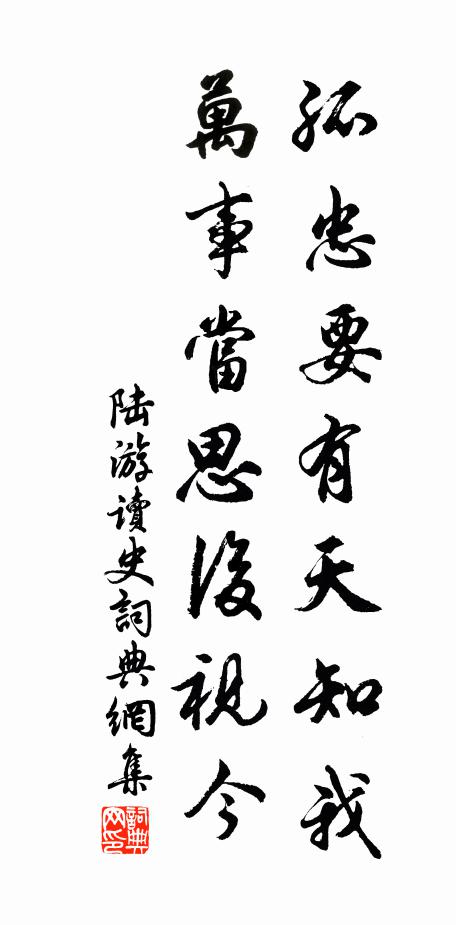 孤忠要有天知我
萬事當思後視今
陆游讀史詞典網集
詞典网印